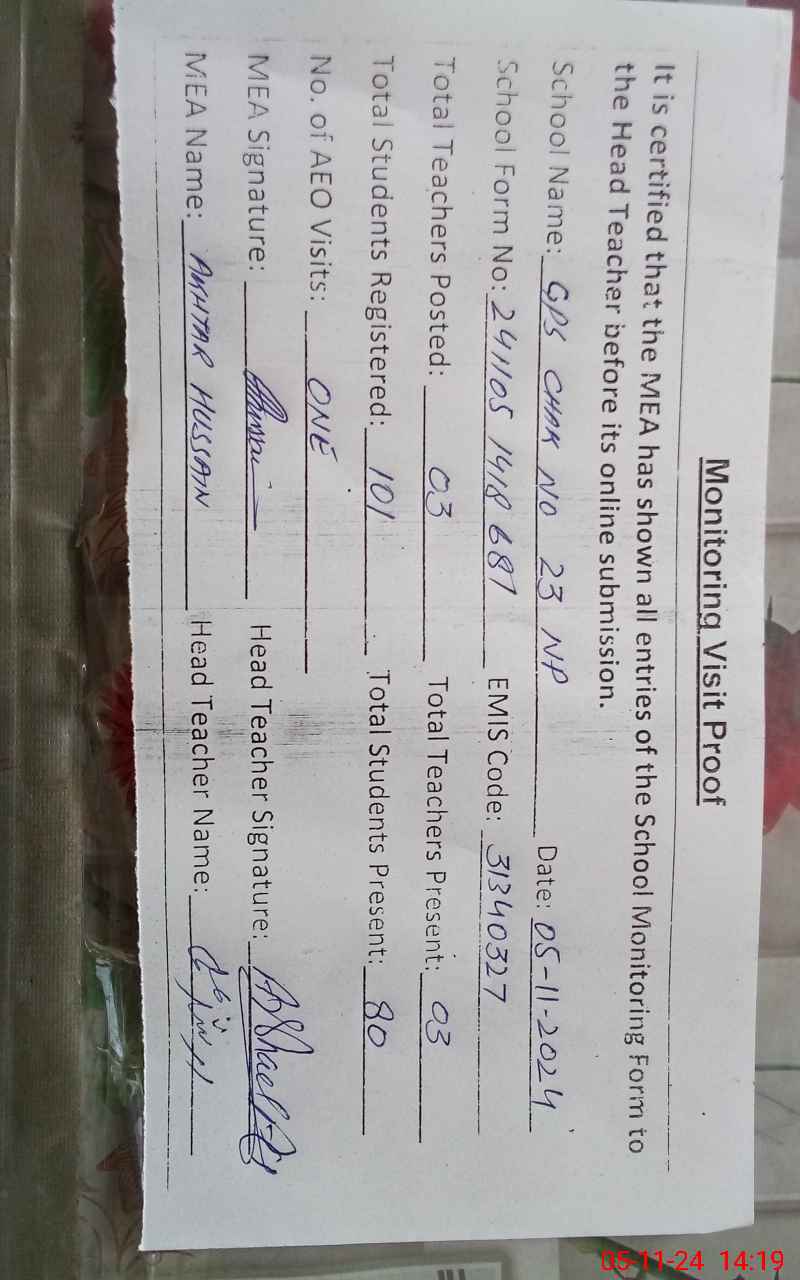 Monitoring Visit Proof
It is certified that the MEA has shown all entries of the School Monitoring Form to
the Head Teacher before its online submission.
School Name: GPS CHAK NO 23 NP Date: 05-11-2024
School Form No: 241105 1418 687 EMIS Code: 31340327
Total Teachers Posted: 03 Total Teachers Present: 03
Total Students Registered: 101 Total Students Present: 80
No. of AEO Visits: ONE
MEA Signature: Head Teacher Signature:
MEA Name: AKHTAR HUSSAIN Head Teacher Name:
05-11-24 14:19